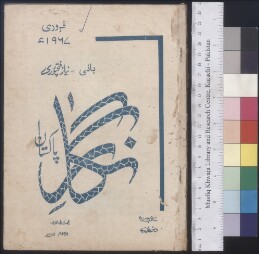 فروری
۱۹۶۷ء
بانی - نیاز فتحپوری
نگار
پاکستان
Mushfiq Khwaja Library and Research Centre, Karachi - Pakistan